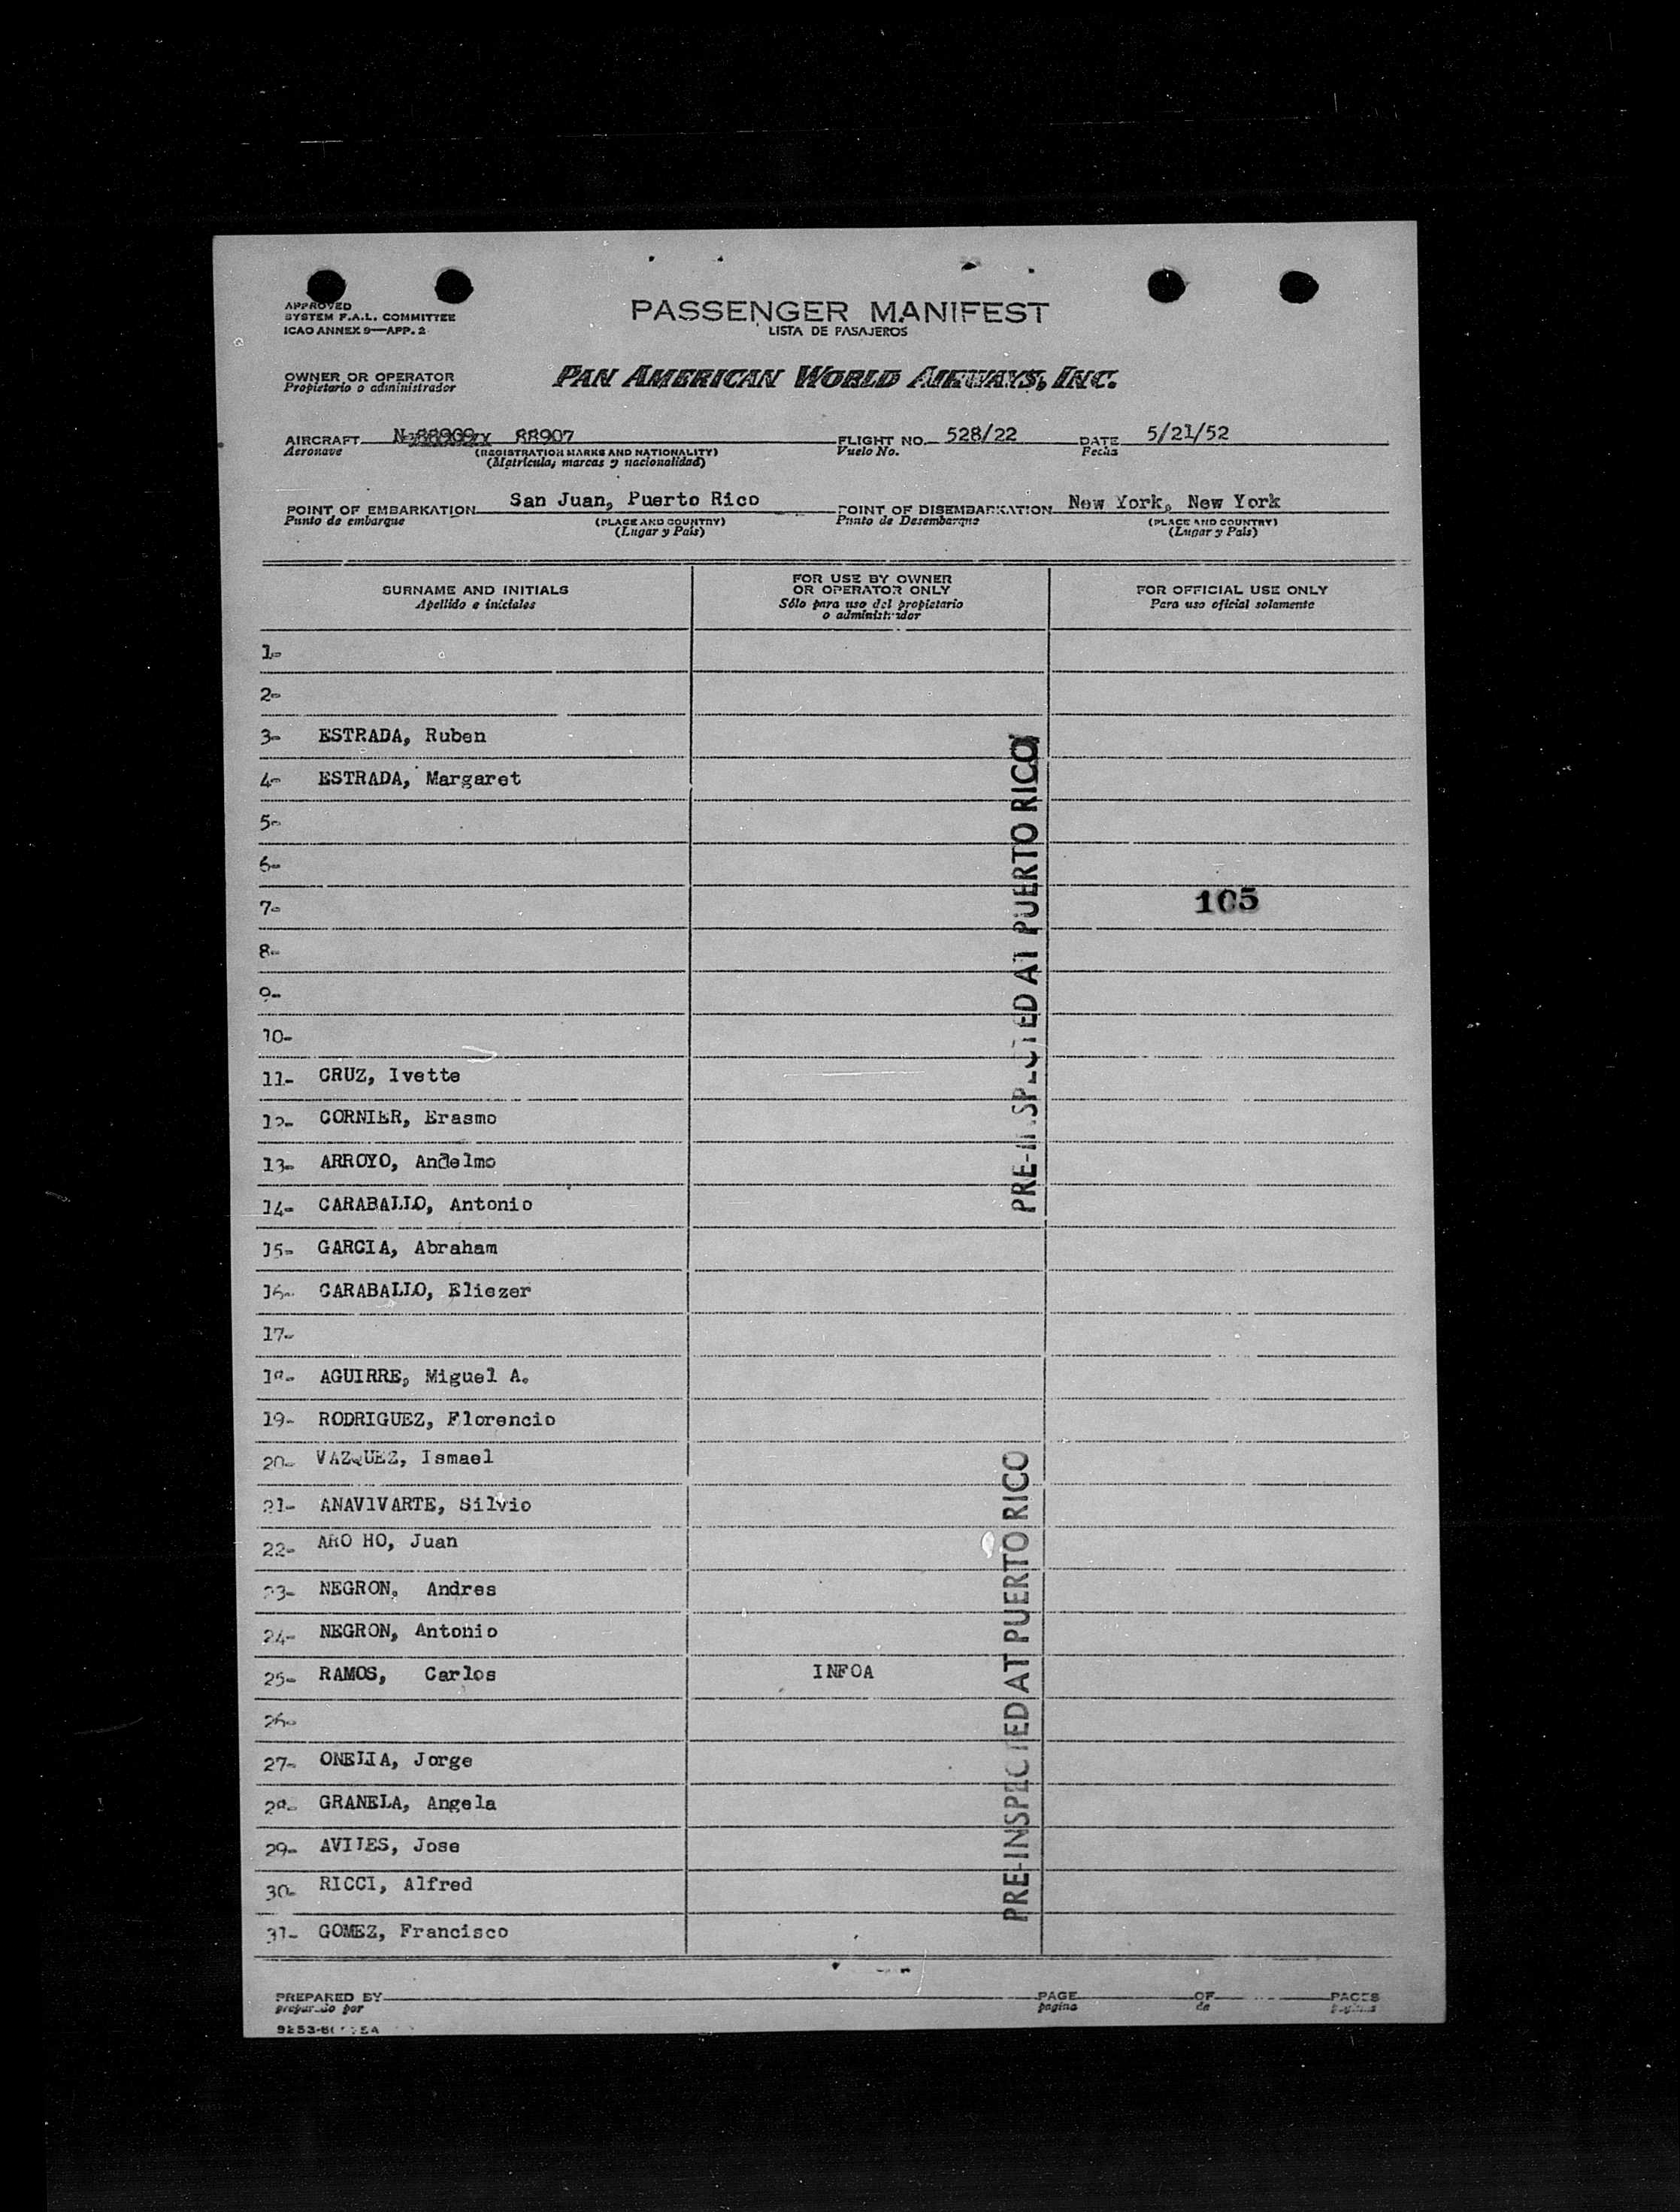 APPROVED
SYSTEM F.A.L. COMMITTEE
ICAO ANNEX 9—APP. 2
PASSENGER MANIFEST
LISTA DE PASAJEROS
OWNER OR OPERATOR
Propietario o administrador
PAN AMERICAN WORLD AIRWAYS, INC.
AIRCRAFT 88907
Aeronave
(REGISTRATION MARKS AND NATIONALITY)
(Matricula, marcas y nacionalidad)
FLIGHT NO. 528/22
Vuelo No.
DATE 5/21/52
Fecha
POINT OF EMBARKATION San Juan, Puerto Rico
Punto de embarque
(PLACE AND COUNTRY)
(Lugar y País)
POINT OF DISEMBARKATION New York, New York
Punto de Desembarque
(PLACE AND COUNTRY)
(Lugar y País)
SURNAME AND INITIALS
Apellido e iniciales
FOR USE BY OWNER
OR OPERATOR ONLY
Sólo para uso del propietario
o administrador
FOR OFFICIAL USE ONLY
Para uso oficial solamente
1-
2-
3- ESTRADA, Ruben
4- ESTRADA, Margaret
5-
6-
7- 105
8-
9-
10-
11- CRUZ, Ivette
12- CORNIER, Erasmo
13- ARROYO, Andelmo
14- CARABALLO, Antonio
15- GARCIA, Abraham
16- CARABALLO, Eliezer
17-
18- AGUIRRE, Miguel A.
19- RODRIGUEZ, Florencio
20- VAZQUEZ, Ismael
21- ANAVIVARTE, Silvio
22- ARO HO, Juan
23- NEGRON, Andres
24- NEGRON, Antonio
25- RAMOS, Carlos INFOA
26-
27- ONELIA, Jorge
28- GRANELA, Angela
29- AVILES, Jose
30- RICCI, Alfred
31- GOMEZ, Francisco
PRE-INSPECTED AT PUERTO RICO
PRE-INSPECTED AT PUERTO RICO
PREPARED BY
preparado por
PAGE OF PAGES
pagina de paginas